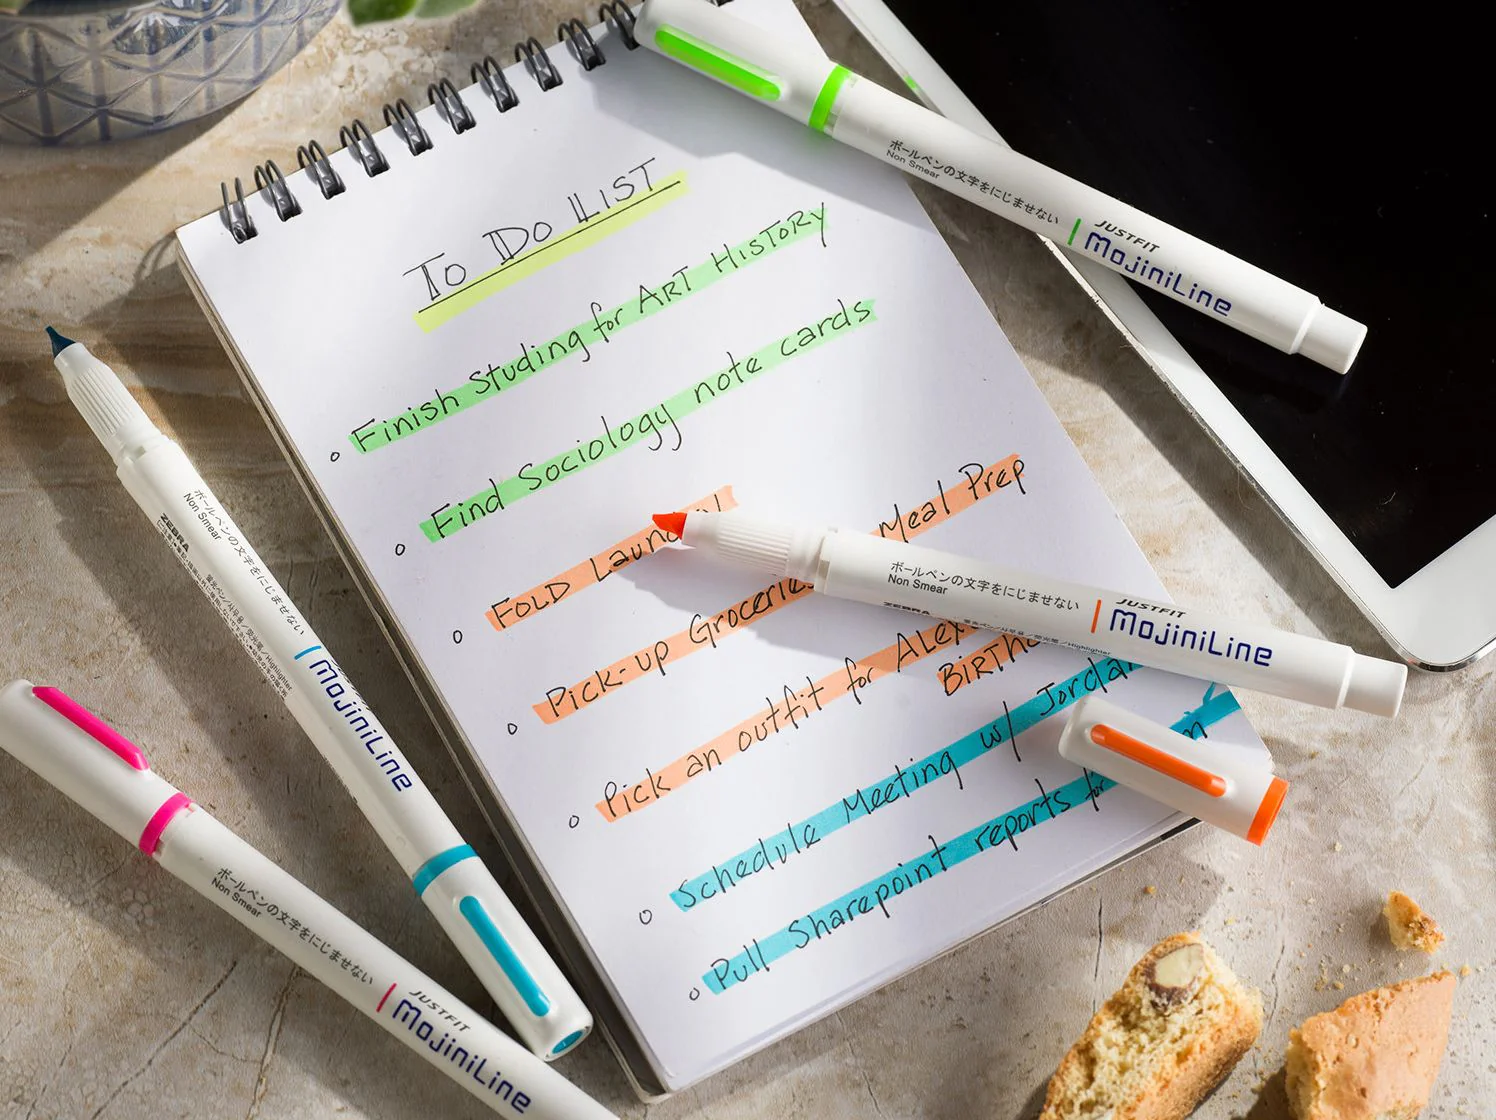 To Do LIST
Finish Studing for ART HISTORY
Find Sociology note cards
FOLD
Pick-up Groceries Meal Prep
Pick an outfit for
Schedule Meeting w/ Jordan
Pull Sharepoint reports for
ボールペンの文字をにじませない
Non Smear
JUSTFIT
MojiniLine
ボールペンの文字をにじませない
Non Smear
ZEBRA
蛍光ペン/샤프용/荧光笔/Highlighter
JUSTFIT
MojiniLine
ボールペンの文字をにじませない
Non Smear
ZEBRA
MojiniLine
ボールペンの文字をにじませない
Non Smear
JUSTFIT
MojiniLine